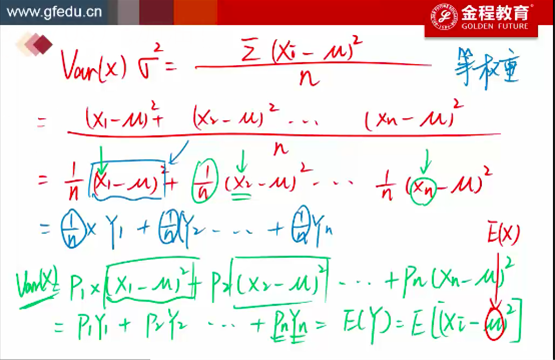 www.gfedu.cn
金程教育
GOLDEN FUTURE
Var(x) σ² = Σ(xi − μ)² / n 等权重
= (x₁−μ)² + (x₂−μ)² ··· (xn−μ)² / n
= 1/n (x₁−μ)² + 1/n (x₂−μ)² ··· 1/n (xn−μ)²
= 1/n × Y₁ + 1/n Y₂ ··· + 1/n Yn
E(X)
Var(x) = P₁ × (x₁−μ)² + P₂ (x₂−μ)² ··· + Pn (xn−μ)²
= P₁Y₁ + P₂Y₂ ··· + PnYn = E(Y) = E[(xi − μ)²]